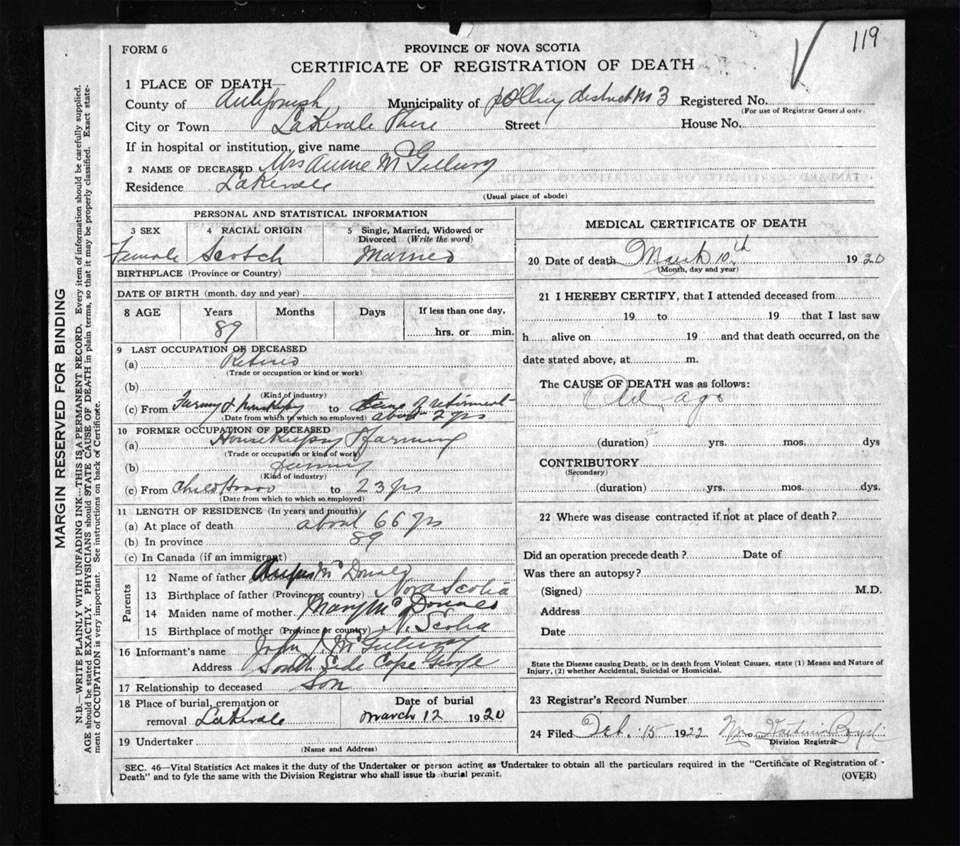 119
FORM 6
PROVINCE OF NOVA SCOTIA
CERTIFICATE OF REGISTRATION OF DEATH
1 PLACE OF DEATH
County of Antigonish Municipality of polling district No 3 Registered No.
(For use of Registrar General only.
City or Town Lakevale Street House No.
If in hospital or institution, give name
2 NAME OF DECEASED Mrs Annie McGillivry
Residence Lakevale
(Usual place of abode)
PERSONAL AND STATISTICAL INFORMATION
3 SEX 4 RACIAL ORIGIN 5 Single, Married, Widowed or
Divorced (Write the word)
Female Scotch Married
BIRTHPLACE (Province or Country)
DATE OF BIRTH (month, day and year)
8 AGE Years Months Days If less than one day,
89 hrs. or min.
9 LAST OCCUPATION OF DECEASED
(a) Retired
(Trade or occupation or kind or work)
(b)
(Kind of industry)
(c) From to time of retirement
about 2 yrs
(Date from which to which so employed)
10 FORMER OCCUPATION OF DECEASED
(a) Housekeeping & farming
(Trade or occupation or kind of work)
(b) farming
(Kind of industry)
(c) From Childhood to 23 yrs
(Date from which to which so employed)
11 LENGTH OF RESIDENCE (In years and months)
(a) At place of death about 66 yrs
(b) In province 89
(c) In Canada (if an immigrant)
Parents
12 Name of father Angus McDonald
13 Birthplace of father (Province or country) Nova Scotia
14 Maiden name of mother Mary McDonald
15 Birthplace of mother (Province or country) N. Scotia
16 Informant's name John McGillivry
Address South Side Cape George
17 Relationship to deceased Son
18 Place of burial, cremation or Date of burial
removal Lakevale March 12 1920
19 Undertaker
(Name and Address)
MEDICAL CERTIFICATE OF DEATH
20 Date of death March 10th 1920
(Month, day and year)
21 I HEREBY CERTIFY, that I attended deceased from
19 to 19 that I last saw
h alive on 19 and that death occurred, on the
date stated above, at m.
The CAUSE OF DEATH was as follows:
Old age
(duration) yrs. mos. dys
CONTRIBUTORY
(Secondary)
(duration) yrs. mos. dys.
22 Where was disease contracted if not at place of death?
Did an operation precede death? Date of
Was there an autopsy?
(Signed) M.D.
Address
Date
State the Disease causing Death, or in death from Violent Causes, state (1) Means and Nature of
Injury, (2) whether Accidental, Suicidal or Homicidal.
23 Registrar's Record Number
24 Filed Feb. 15 1922 Mrs
Division Registrar
SEC. 46—Vital Statistics Act makes it the duty of the Undertaker or person acting as Undertaker to obtain all the particulars required in the "Certificate of Registration of
Death" and to fyle the same with the Division Registrar who shall issue the burial permit.
(OVER)
MARGIN RESERVED FOR BINDING
N.B.—WRITE PLAINLY WITH UNFADING INK—THIS IS A PERMANENT RECORD. Every item of information should be carefully supplied.
AGE should be stated EXACTLY. PHYSICIANS should STATE CAUSE OF DEATH in plain terms, so that it may be properly classified. Exact state-
ment of OCCUPATION is very important. See instructions on back of Certificate.